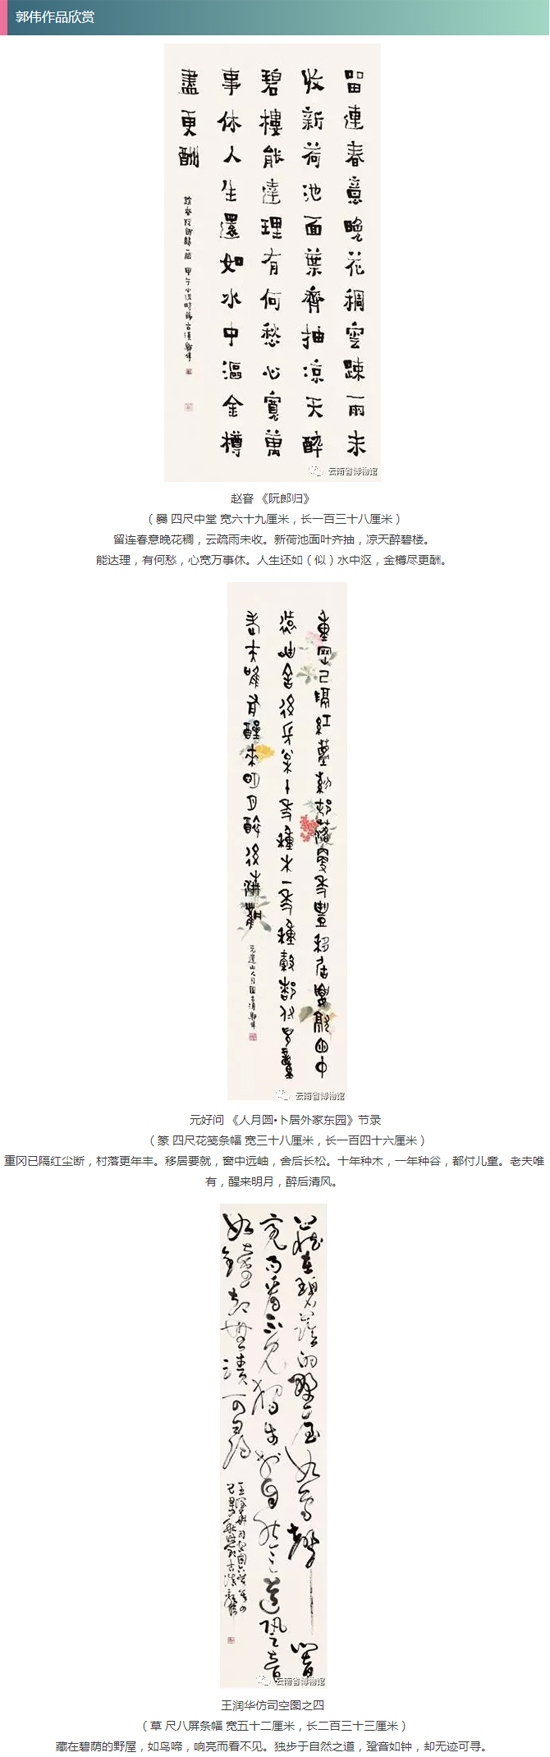 郭伟作品欣赏
留連春意晚花稠雲疎雨未
收新荷池面葉齊抽涼天醉
碧樓能達理有何愁心寬萬
事休人生還如水中漚金樽
盡更酬
云南省博物馆
赵昚 《阮郎归》
（爨 四尺中堂 宽六十九厘米，长一百三十八厘米）
留连春意晚花稠，云疏雨未收。新荷池面叶齐抽，凉天醉碧楼。
能达理，有何愁，心宽万事休。人生还如（似）水中沤，金樽尽更酬。
重岡已隔紅塵斷村落更年豐移居要就窗中
遠岫舍後長松十年種木一年種穀都付兒童
老夫唯有醒來明月醉後清風
云南省博物馆
元好问 《人月圆•卜居外家东园》节录
（篆 四尺花笺条幅 宽三十八厘米，长一百四十六厘米）
重冈已隔红尘断，村落更年丰。移居要就，窗中远岫，舍后长松。十年种木，一年种谷，都付儿童。老夫唯
有，醒来明月，醉后清风。
云南省博物馆
王润华仿司空图之四
（草 尺八屏条幅 宽五十二厘米，长二百三十三厘米）
藏在碧荫的野屋，如鸟啼，响亮而看不见。独步于自然之道，跫音如钟，却无迹可寻。